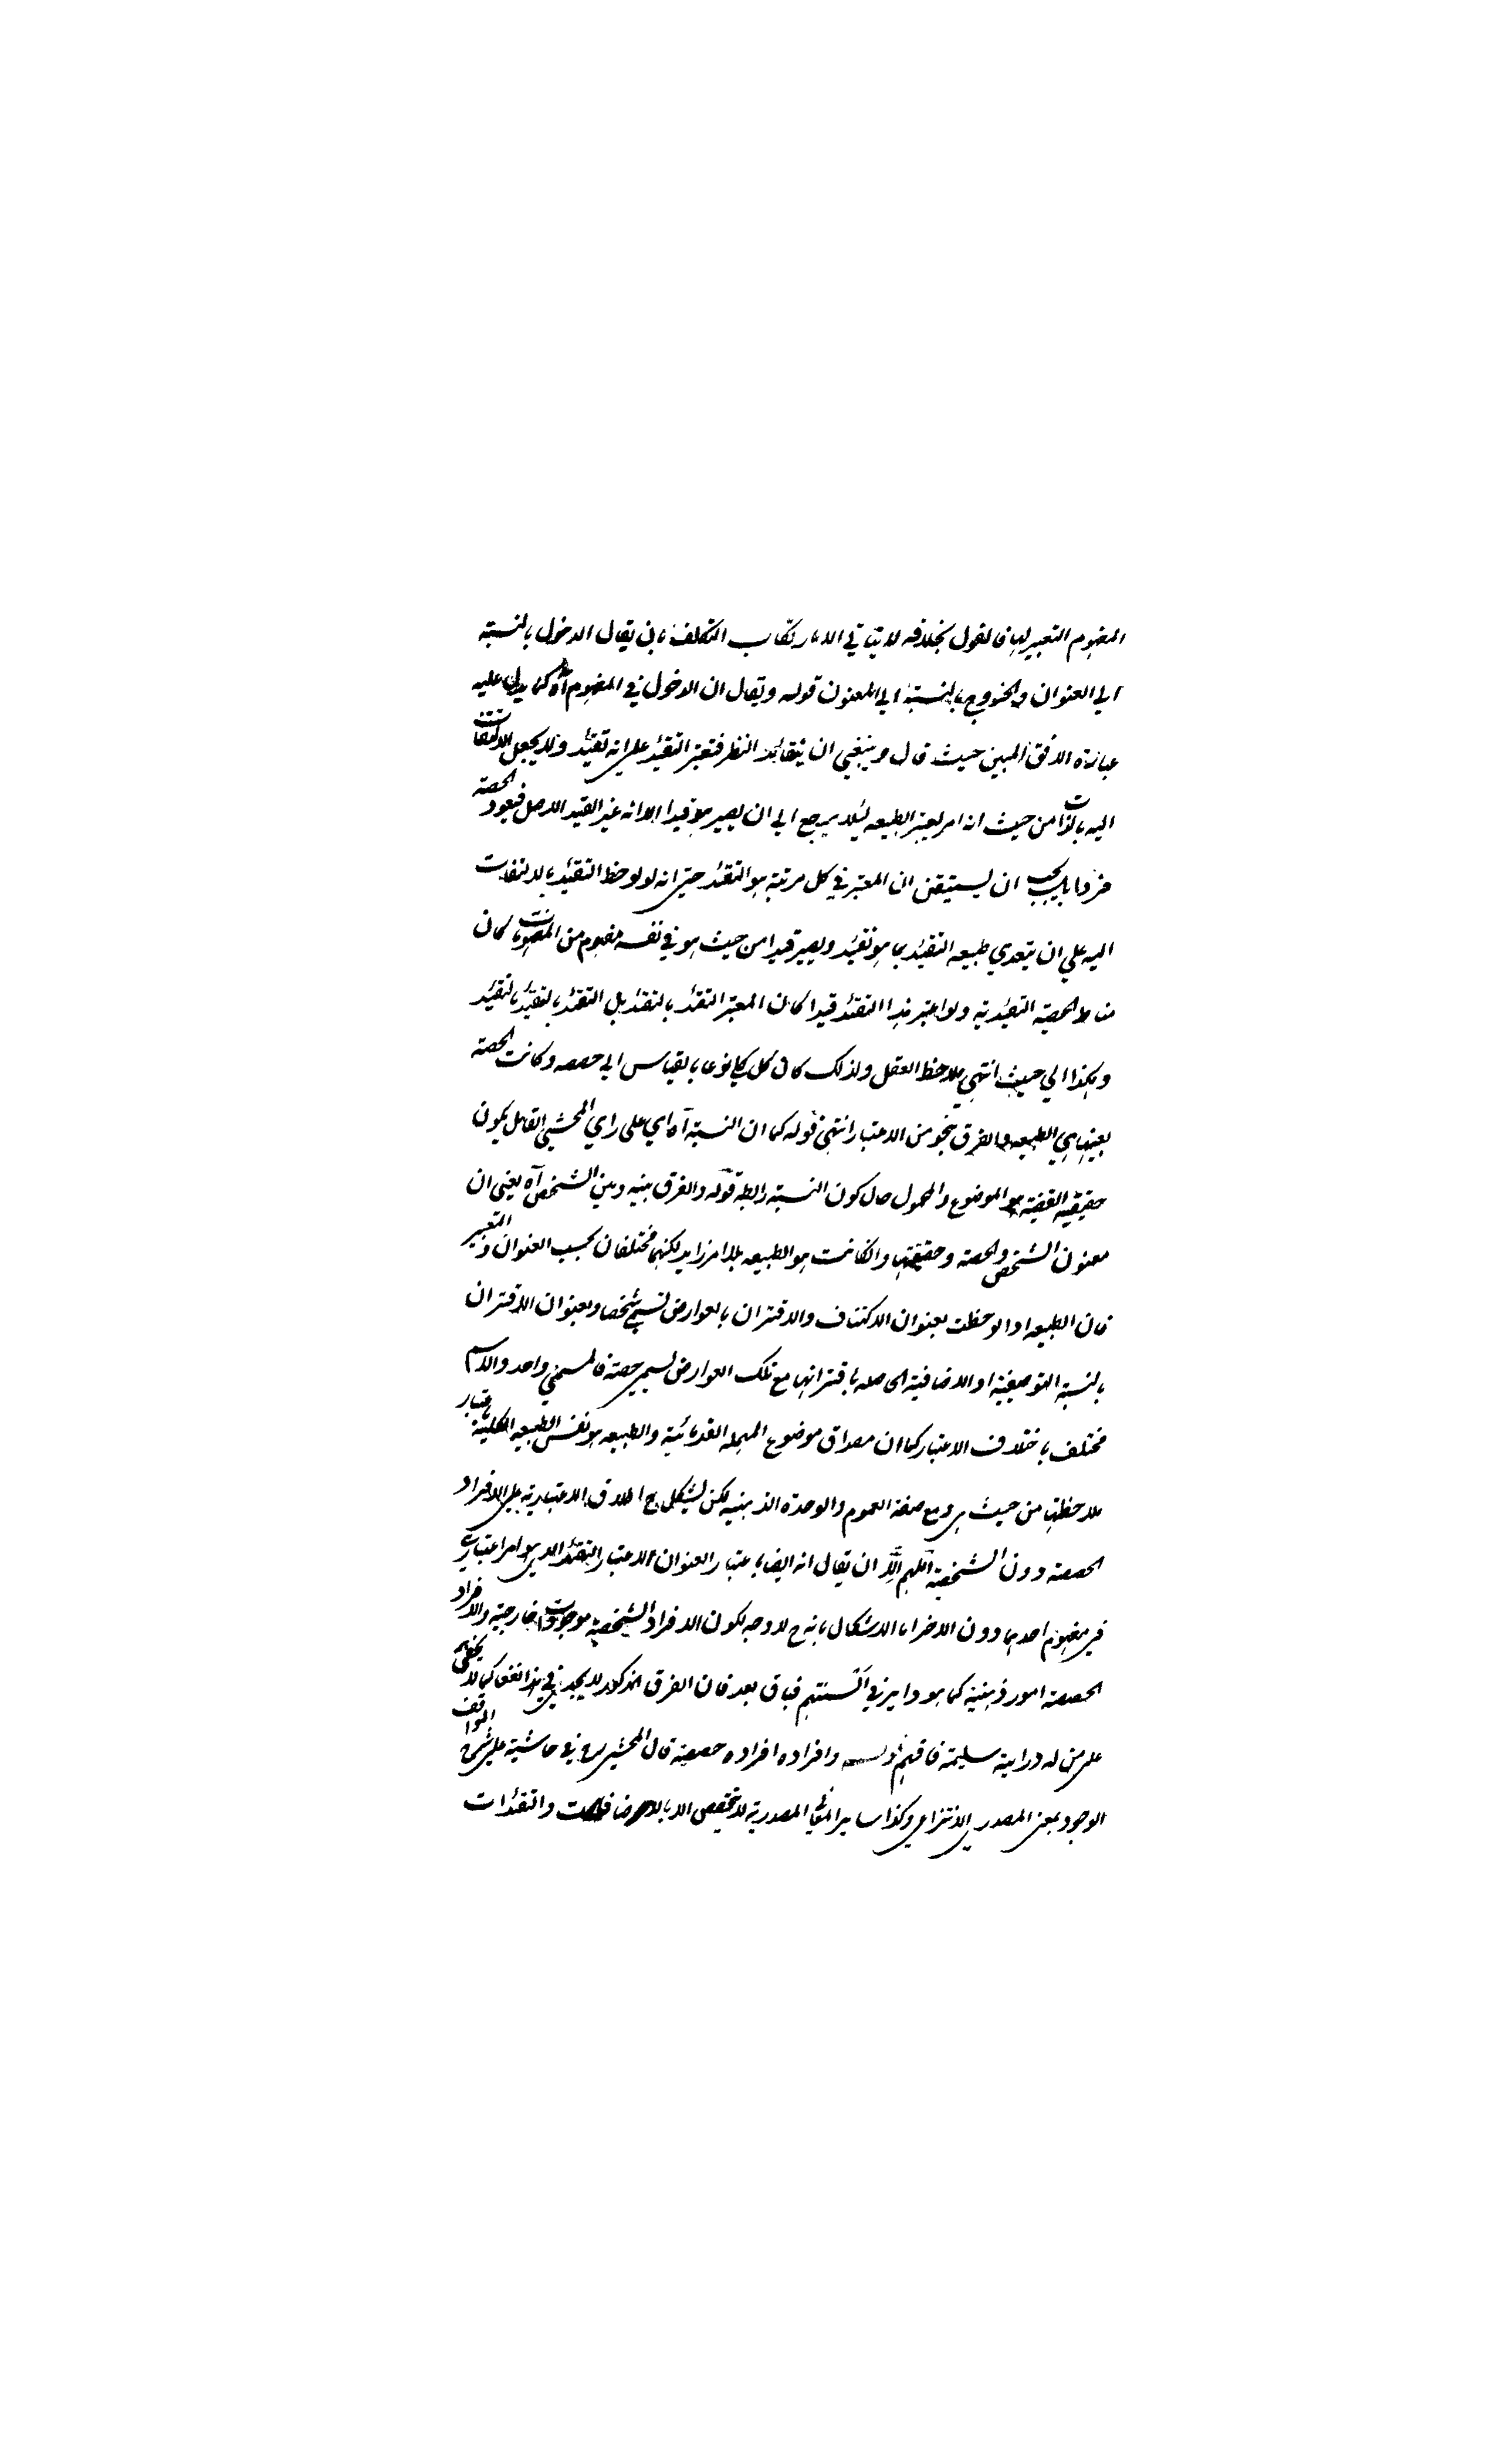 المفهوم التعبير لها فالقول بخلافه لا يتاتي الا بارتكاب التكلف بان يقال الدخول بالنسبة
الي العنوان والخروج بالنسبة الي المعنون قوله ويقال ان الدخول في المفهوم آه كما يدل عليه
عبارة الافق المبين حيث قال وينبغي ان النظر فتعتبر التقيد علي انه تقيد ولا يجعل الالتفات
اليه بالذات من حيث انه امر يعتبر الطبيعه لئلا يرجع الي ان يصير هو قيدا الا انه غير القيد الاصل فيعود الحصة
فردا بل يجب ان يستيقن ان المعتبر في كل مرتبة هو التقيد حتي انه لو لوحظ التقيد بالالتفات
اليه علي ان يتعدي طبيعه التقيد بما هو تقيد ويصير قيدا من حيث هو في نفسه مفهوم من المفهومات كان
مناط الحصية التقيدية ولو اعتبر هذا التقيد قيدا كان المعتبر التقيد بالتقيد بل التقيد بتقيد بالتقيد
وهكذا الي حيث انتهي ملاحظ العقل ولذلك كان كل كلي نوعا بالقياس الي حصصه وكانت الحصة
بعينها هي الطبيعه والفرق بنحو من الاعتبار انتهي قوله كما ان النسبة آه اي علي راي المحشي القائل بكون
حقيقية القضية هو الموضوع والمحمول حال كون النسبة رابطة قوله والفرق بينه وبين الشخص آه يعني ان
معنون الشخص والحصة وحقيقتها وان كانت هو الطبيعه بلا امر زايد لكنهما مختلفان بحسب العنوان والتعبير
فان الطبيعه اذا لوحظت بعنوان الاكتناف والاقتران بالعوارض تسمي شخصا وبعنوان الاقتران
بالنسبة التوصيفية او الاضافية الحاصله باقترانها مع تلك العوارض تسمي حصة فالمسمي واحد والاسم
مختلف باختلاف الاعتبار كما ان مصداق موضوع المهمله القدمائية والطبيعه هو نفس الطبيعه الكلية باعتبار
ملاحظتها من حيث هي ومع صفة العموم والوحدة الذهنية لكن يشكل ح اطلاق الاعتبارية علي الافراد
الحصصة دون الشخصية اللهم الا ان يقال انه ايضا باعتبار العنوان لاعتبار التقيد الذي هو امر اعتباري
في مفهوم احدهما دون الاخر اما الاشكال بانه ح لا وجه لكون الافراد الشخصية موجودات خارجية والافراد
الحصصة امور ذهنية كما هو داير في السنتهم فباق بعد فان الفرق المذكور لا يجدي في هذا نفعا كما لا يخفي
علي من له دراية سليمة فافهم قوله وافراده افراده حصصية قال المحشي في حاشية علي شرح المواقف
الوجود بمعني المصدري الانتزاعي وكذا ساير المعاني المصدرية لا تتخصص الا بالاضافات والتقيدات